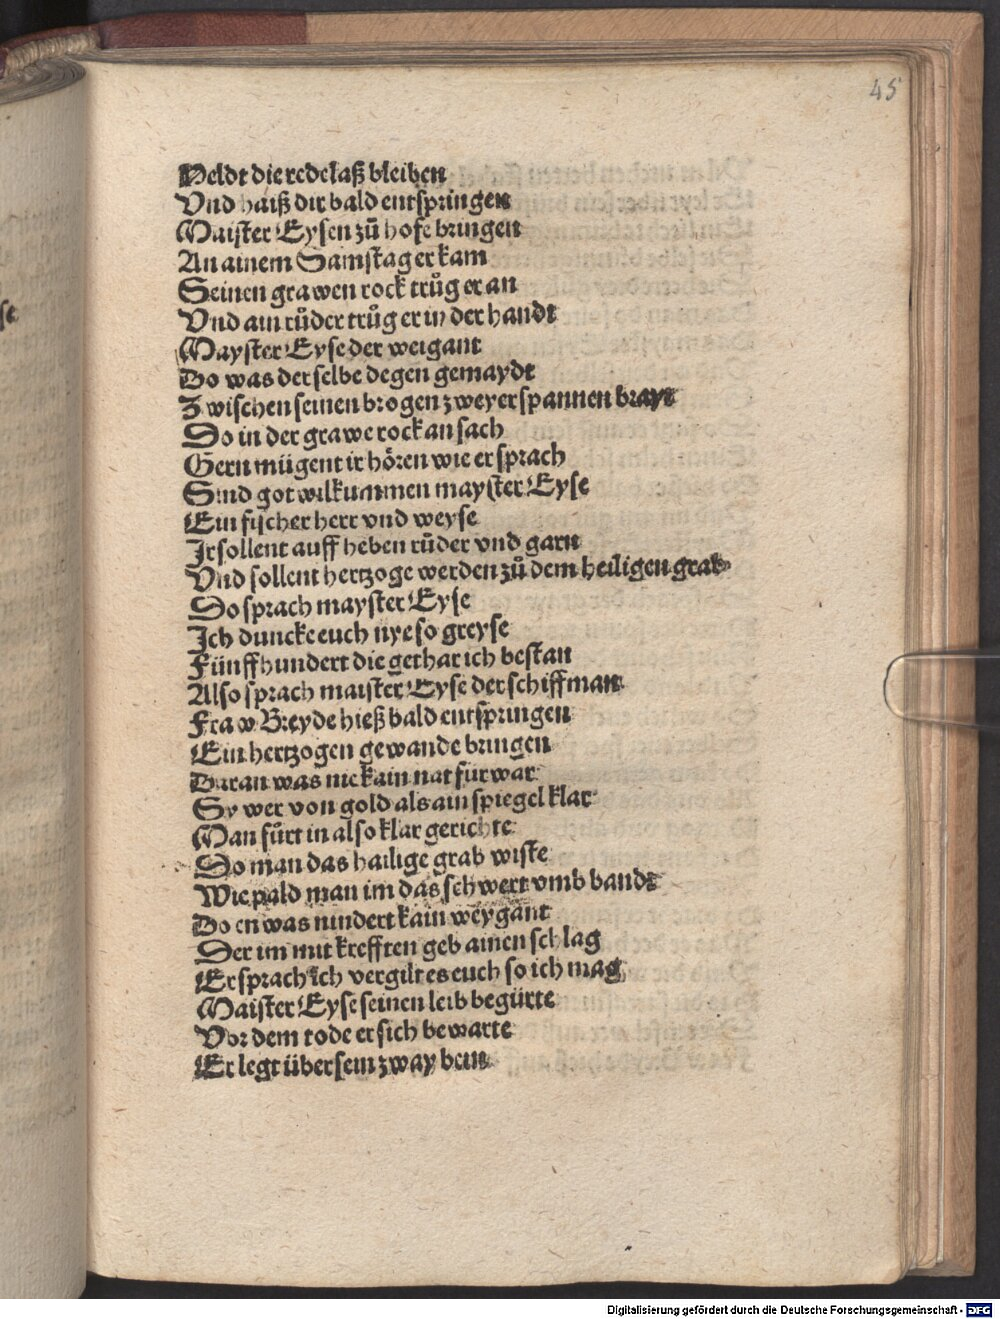 45
Heldt die rede laß bleiben
Vnd haiß dir bald entspringen
Maister Eysen zů hofe bringen
An ainem Samstag er kam
Seinen grawen rock trůg er an
Vnd ain růder trůg er in der handt
Mayster Eyse der weigant
Do was der selbe degen gemaydt
Zwischen seinen brogen zweyer spannen brayt
Do in der grawe rock an sach
Gern mügent ir hören wie er sprach
Sind got wilkummen mayster Eyse
Ein fischer herr vnd weyse
Ir sollent auff heben růder vnd garn
Vnd sollent hertzoge werden zů dem heiligen grab
Do sprach mayster Eyse
Ich duncke euch nye so greyse
Fünffhundert die gethar ich bestan
Also sprach maister Eyse der schiffman
Fraw Breyde hieß bald entspringen
Ein hertzogen gewande bringen
Daran was nie kain nat für war
Sy wer von gold als ain spiegel klar
Man fůrt in also klar gerichte
Do man das hailige grab wiste
Wie pald man im das schwert vmb bandt
Do en was nindert kain weygant
Der im mit krefften geb ainen schlag
Er sprach ich vergilt es euch so ich mag
Maister Eyse seinen leib begürte
Vor dem tode er sich bewarte
Er legt über sein zway bein
Digitalisierung gefördert durch die Deutsche Forschungsgemeinschaft - DFG